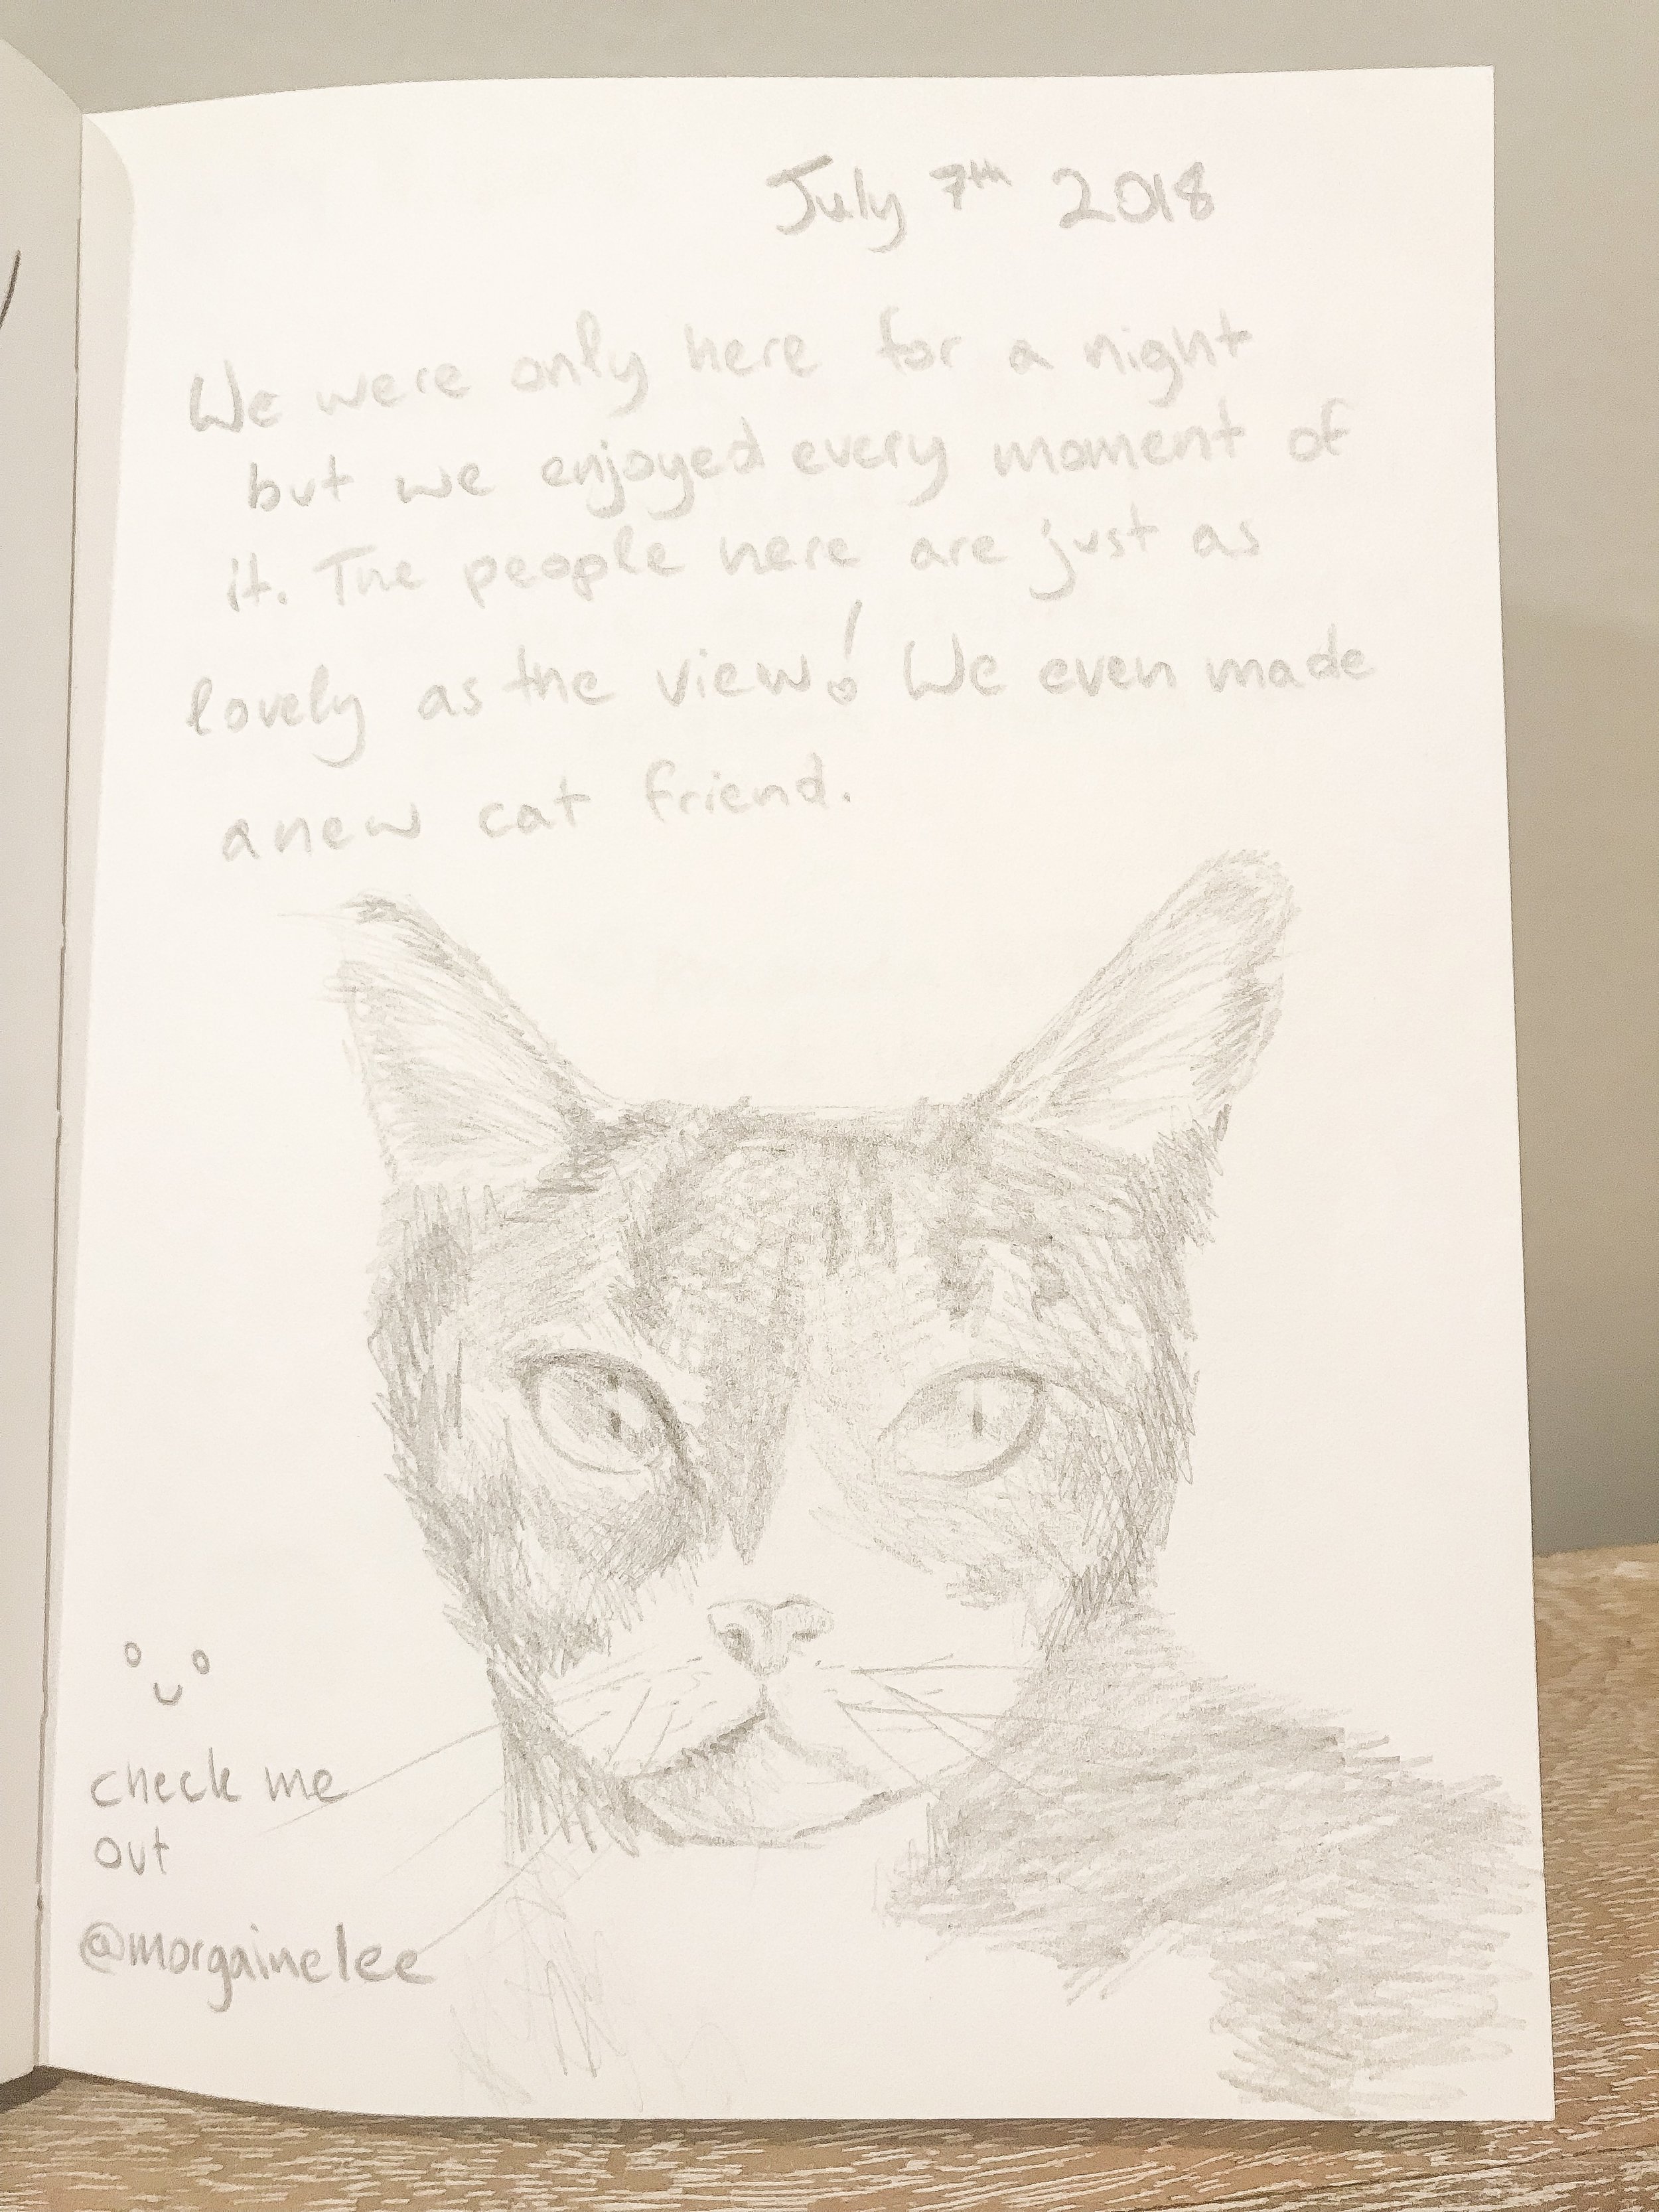 July 7th 2018
We were only here for a night
but we enjoyed every moment of
it. The people here are just as
lovely as the view! We even made
a new cat friend.
check me
out
@morgainelee